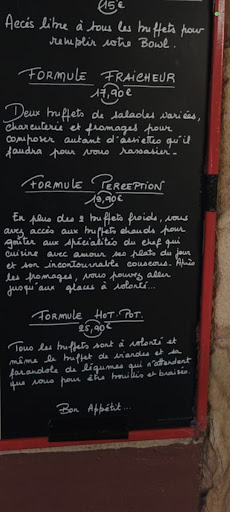 15€
Accés libre à tous les buffets pour
remplir votre Bowl.
FORMULE FRAÎCHEUR
17,90€
Deux buffets de salades variées,
charcuterie et fromages pour
composer autant d'assiettes qu'il
faudra pour vous rassasier.
FORMULE PERCEPTION
19,90€
En plus des 2 buffets froids, vous
avez accès aux buffets chauds pour
goûter aux spécialités du chef qui
cuisine avec amour ses plats du jour
et son incontournable couscous. Après
les fromages, vous pouvez aller
jusqu'aux glaces à volonté...
FORMULE HOT POT.
25,90€
Tous les buffets sont à volonté et
même le buffet de viandes et sa
farandole de légumes qui n'attendent
que vous pour être bouillis et braisés.
Bon Appétit...